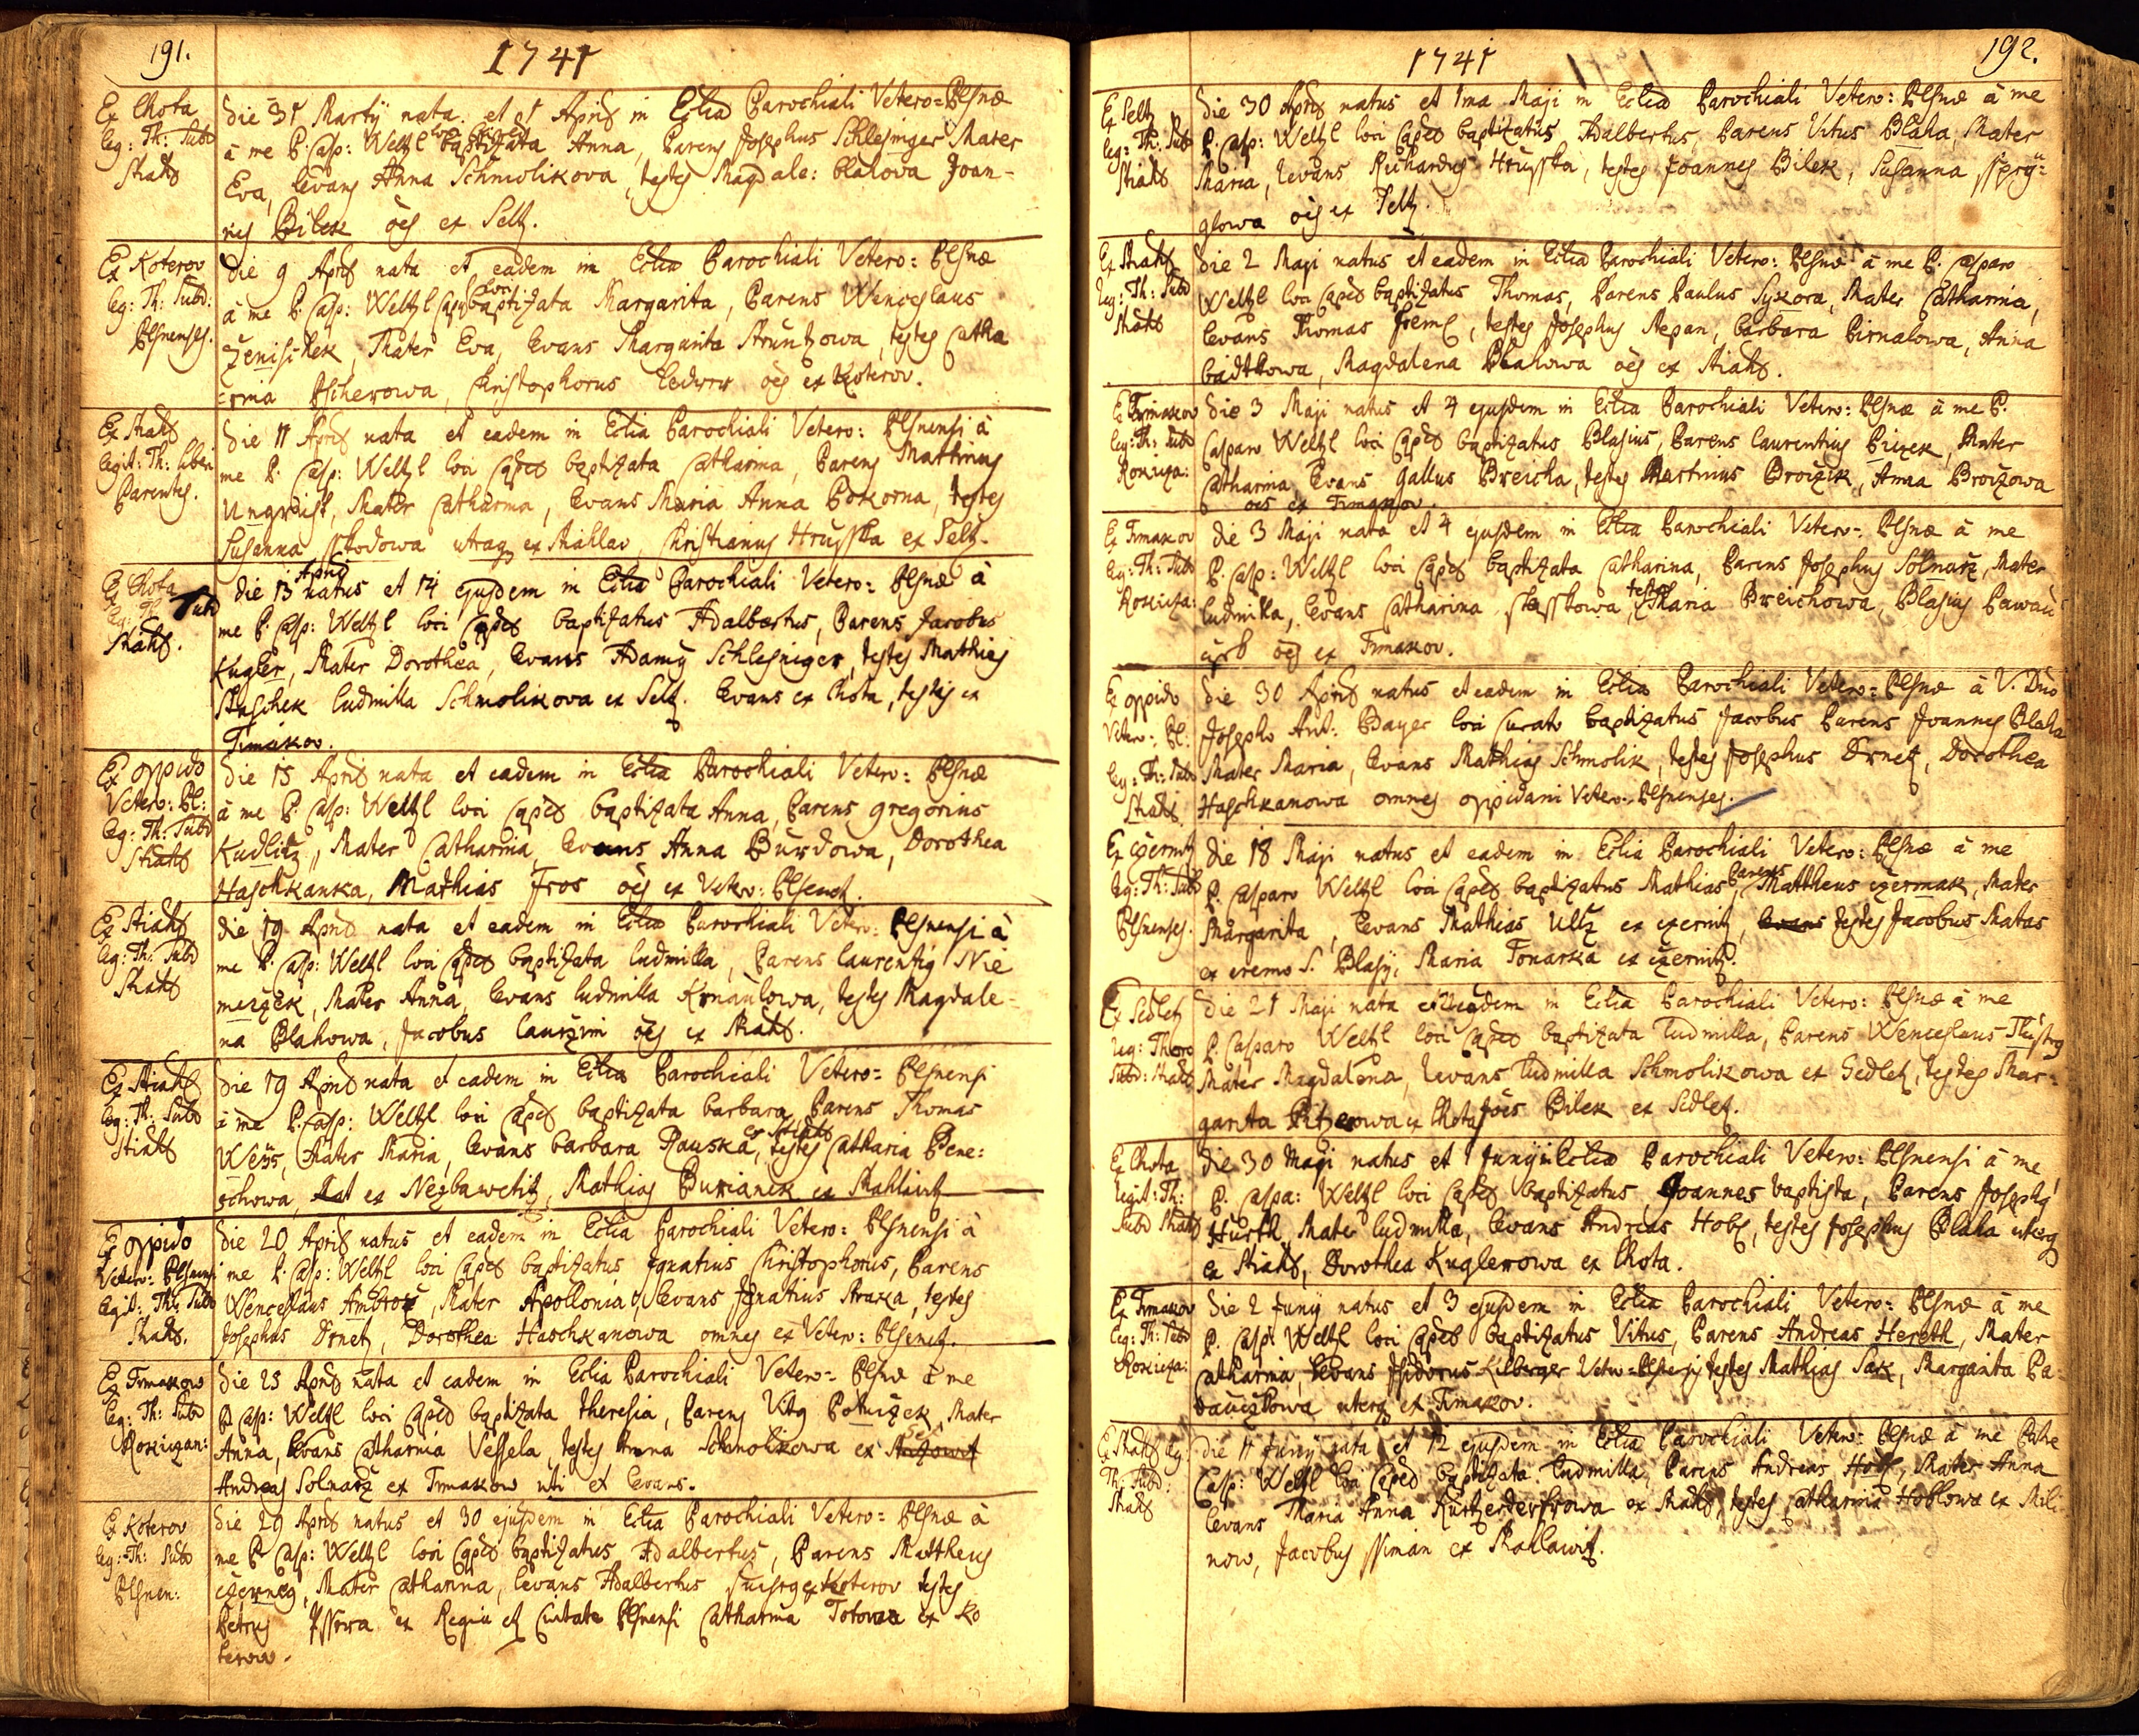 191.
1741
Ex Lhota
leg: Th: Subd
Stiahl
die 31 Martÿ nata et 1 Aprilis in Eclia Parochiali Vetero=Plsnæ
à me P: Casp: Weltzl loci Capel baptizata Anna, Parens Josephus Schlesinger Mater
Eva, levans Anna Schmolikova, testes Magdale: blahova Joan-
nes Bilek oes ex Seltz.
Ex Koterov
leg: Th: Subd:
Plsnenses.
die 9 Aprilis nata et eadem in Eclia Parochiali Vetero: Plsnæ
à me P: Casp: Weltzl loci Capel baptizata Margarita, Parens Wenceslaus
Zenischek, Mater Eva, levans Margarita Struntzowa, testes Catha
rina Pscherowa, Christophorus Ledwin oes ex Koterov.
Ex Stiahl
legit: Th: liberi
Parentes.
die 11 Aprilis nata et eadem in Eclia Parochiali Vetero: Plsnensi à
me P: Casp: Weltzl loci Capel baptizata Catharina, Parens Martinus
Ungreist, Mater Catharina, levans Maria Anna Pokorna, testes
Susanna sskodowa utraq ex Stiahlav, Christianus Hrusska ex Seltz.
Ex Lhota
leg: Th: Subd
Stiahl.
die 13 Aprilis natus et 14 ejusdem in Eclia Parochiali Vetero: Plsnæ à
me P: Casp: Weltzl loci Capel baptizatus Adalbertus, Parens Jacobus
Kugler, Mater Dorothea, levans Adamus Schlesniger, testes Mathias
Staschek ludmilla Schmolikova ex Seltz. levans ex Lhota, testis ex
Timakov.
Ex oppido
Vetero: Pl:
leg: Th: Subd
Stiahl
die 15 Aprilis nata et eadem in Eclia Parochiali Vetero: Plsnæ
à me P: Casp: Weltzl loci Capel baptizata Anna, Parens gregorius
Kudlitz, Mater Catharina, levans Anna Burdowa, Dorothea
Haschkanka, Mathias Fros oes ex Vetero: Plsenetz.
Ex Stiahl
leg: Th: Subd
Stiahl
die 19 Aprilis nata et eadem in Eclia Parochiali Vetero: Plsnensi à
me P: Casp: Weltzl loci Capel baptizata ludmilla, Parens laurentius Nie
meczek, Mater Anna, levans ludmilla Krnaulowa, testes Magdale-
na Blahowa, Jacobus laurzim oes ex Stiahl.
Ex Stiahl
leg: Th: Subd
Stiahl
die 19 Aprilis nata et eadem in Eclia Parochiali Vetero= Plsnensi
à me P: Casp: Weltzl loci Capel baptizata barbara Parens Thomas
Weÿs, Mater Maria, levans barbara Rauska ex Stiahl, testes Catharia Bene:
schowa, ex Nezbawetitz, Mathias Burianek ex Stiahlawitz
Ex oppido
Vetero: Plsnensi
legit: Th: Subd
Stiahl.
die 20 Aprilis natus et eadem in Eclia Parochiali Vetero: Plsnensi à
me P: Casp: Weltzl loci Capel baptizatus Ignatius Christophorus, Parens
Wenceslaus Ambrož, Mater Apollonia, levans Ignatius Straka, testes
Josephus Drnetz, Dorothea Haschkanowa omnes ex Vetero: Plsenetz.
Ex Timakow
leg: Th: Subd
Rokiczan:
die 25 Aprilis nata et eadem in Eclia Parochiali Vetero= Plsnæ à me
P: Casp: Weltzl loci Capel baptizata theresia, Parens Vitus Potuczek, Mater
Anna, levans Catharina Vessela, testes Anna Schmolikowa ex
Andreas Solnarž ex Timakow uti et levans.
Ex Koterov
leg: Th: Subd
Plsnen:
die 29 Aprilis natus et 30 ejusdem in Eclia Parochiali Vetero= Plsnæ à
me P: Casp: Weltzl loci Capel baptizatus Adalbertus, Parens Mattheus
czerneg, Mater Catharina, levans Adalbertus ex Koterov testes
Petrus ex Regia et Civitate Plsnensi Catharina Totowa ex Ko
terow.
1741
192.
Ex Seltz
leg: Th: Subd
Stiahl
die 30 Aprilis natus et 1ma Maji in Eclia Parochiali Vetero: Plsnæ à me
P: Casp: Weltzl loci Capel baptizatus Adalbertus, Parens Vitus Blaha, Mater
Maria, levans Richardus Hrusska, testes Joannes Bilek, Susanna
glowa oes ex Seltz.
Ex Stiahl
leg: Th: Subd
Stiahl
die 2 Maji natus et eadem in Eclia Parochiali Vetero: Plsnæ à me P: Casparo
Weltzl loci Capel baptizatus Thomas, Parens Paulus Sykora, Mater Catharina,
levans Thomas freml, testes Josephus Nepan, barbara Pirnalowa, Anna
baidtlowa, Magdalena Blahowa oes ex Stiahl.
Ex Timakov
leg: Th: Subd
Rokicza:
die 3 Maji natus et 4 ejusdem in Eclia Parochiali Vetero: Plsnæ à me P.
Casparo Weltzl loci Capel baptizatus Blasius, Parens laurentius Piczek, Mater
Catharina levans gallus Breicha, testes Martinus Broczik, Anna Broczowa
oes ex Timakov.
Ex Timakov
leg: Th: Subd
Rokicza:
die 3 Maji nata et 4 ejusdem in Eclia Parochiali Vetero=. Plsnæ à me
P: Casp: Weltzl loci Capel baptizata Catharina, Parens Josephus Solnarž, Mater
ludmilla, levans Catharina testes Maria Breichowa, Blasius
oes ex Timakov.
Ex oppido
Vetero: Pl:
leg: Th: Subd
Stiahl
die 30 Aprilis natus et eadem in Eclia Parochiali Vetero=Plsnæ à V. Dno
Josepho Ant: Bayer loci Curato baptizatus Jacobus Parens Joannes Blaha
Mater Maria, levans Mathias Schmolik, testes Josephus Drnetz, Dorothea
Haschkanowa omnes oppidani Vetero=Plsnenses.
Ex czernitz
leg: Th: Subd
Plsnenses.
die 18 Maji natus et eadem in Eclia Parochiali Vetero: Plsnæ à me
P. Casparo Weltzl loci Capel baptizatus Mathias Parens Mattheus czermak, Mater
Margarita, levans Mathias Ultz ex czernitz, levans testes Jacobus Matas
ex eremo S. Blasÿ, Maria Tonarka ex czernitz.
Ex Sedletz
leg: Thoro
Subd: Stiahl
die 21 Maji nata et eadem in Eclia Parochiali Vetero: Plsnæ à me
P. Casparo Weltzl loci Capel baptizata Ludmilla, Parens Wenceslaus Tlustey
Mater Magdalena, levans Ludmilla Schmolikowa ex Sedletz, testes Mar=
garita ex Lhota Joes Bilek ex Sedletz.
Ex Lhota
legit: Th:
Subd Stiahl
die 30 Maji natus et 1 Junÿ in Eclia Parochiali Vetero: Plsnensi à me
P. Caspa: Weltzl loci Capel baptizatus Joannes baptista, Parens Josephus
Hurth, Mater ludmilla, levans Andreas Hobl, testes Josephus Blaha uterq
ex Stiahl, Dorothea Kuglerowa ex Lhota.
Ex Timakov
leg: Th: Subd
Rokicza:
die 2 Junÿ natus et 3 ejusdem in Eclia Parochiali Vetero= Plsnæ à me
P. Casp: Weltzl loci Capel baptizatus Vitus, Parens Andreas Hereth, Mater
Catharina, levans Isidorus Kilberger Vetero=Plsnensis testes Mathias Sak, Margarita Pa-
uterq ex Timakov.
Ex Stiahl leg:
Th: Subd:
Stiahl
die 11 Junÿ nata et 12 ejusdem in Eclia Parochiali Vetero: Plsnæ à me Patre
Casp: Weltzl loci Capel baptizata ludmilla, Parens Andreas Hobl, Mater Anna
levans Maria Anna Kurtzerderfrowa ex Stiahl, testes Catharina Hoblowa ex Mili
now, Jacobus ssiman ex Stiahlawitz.